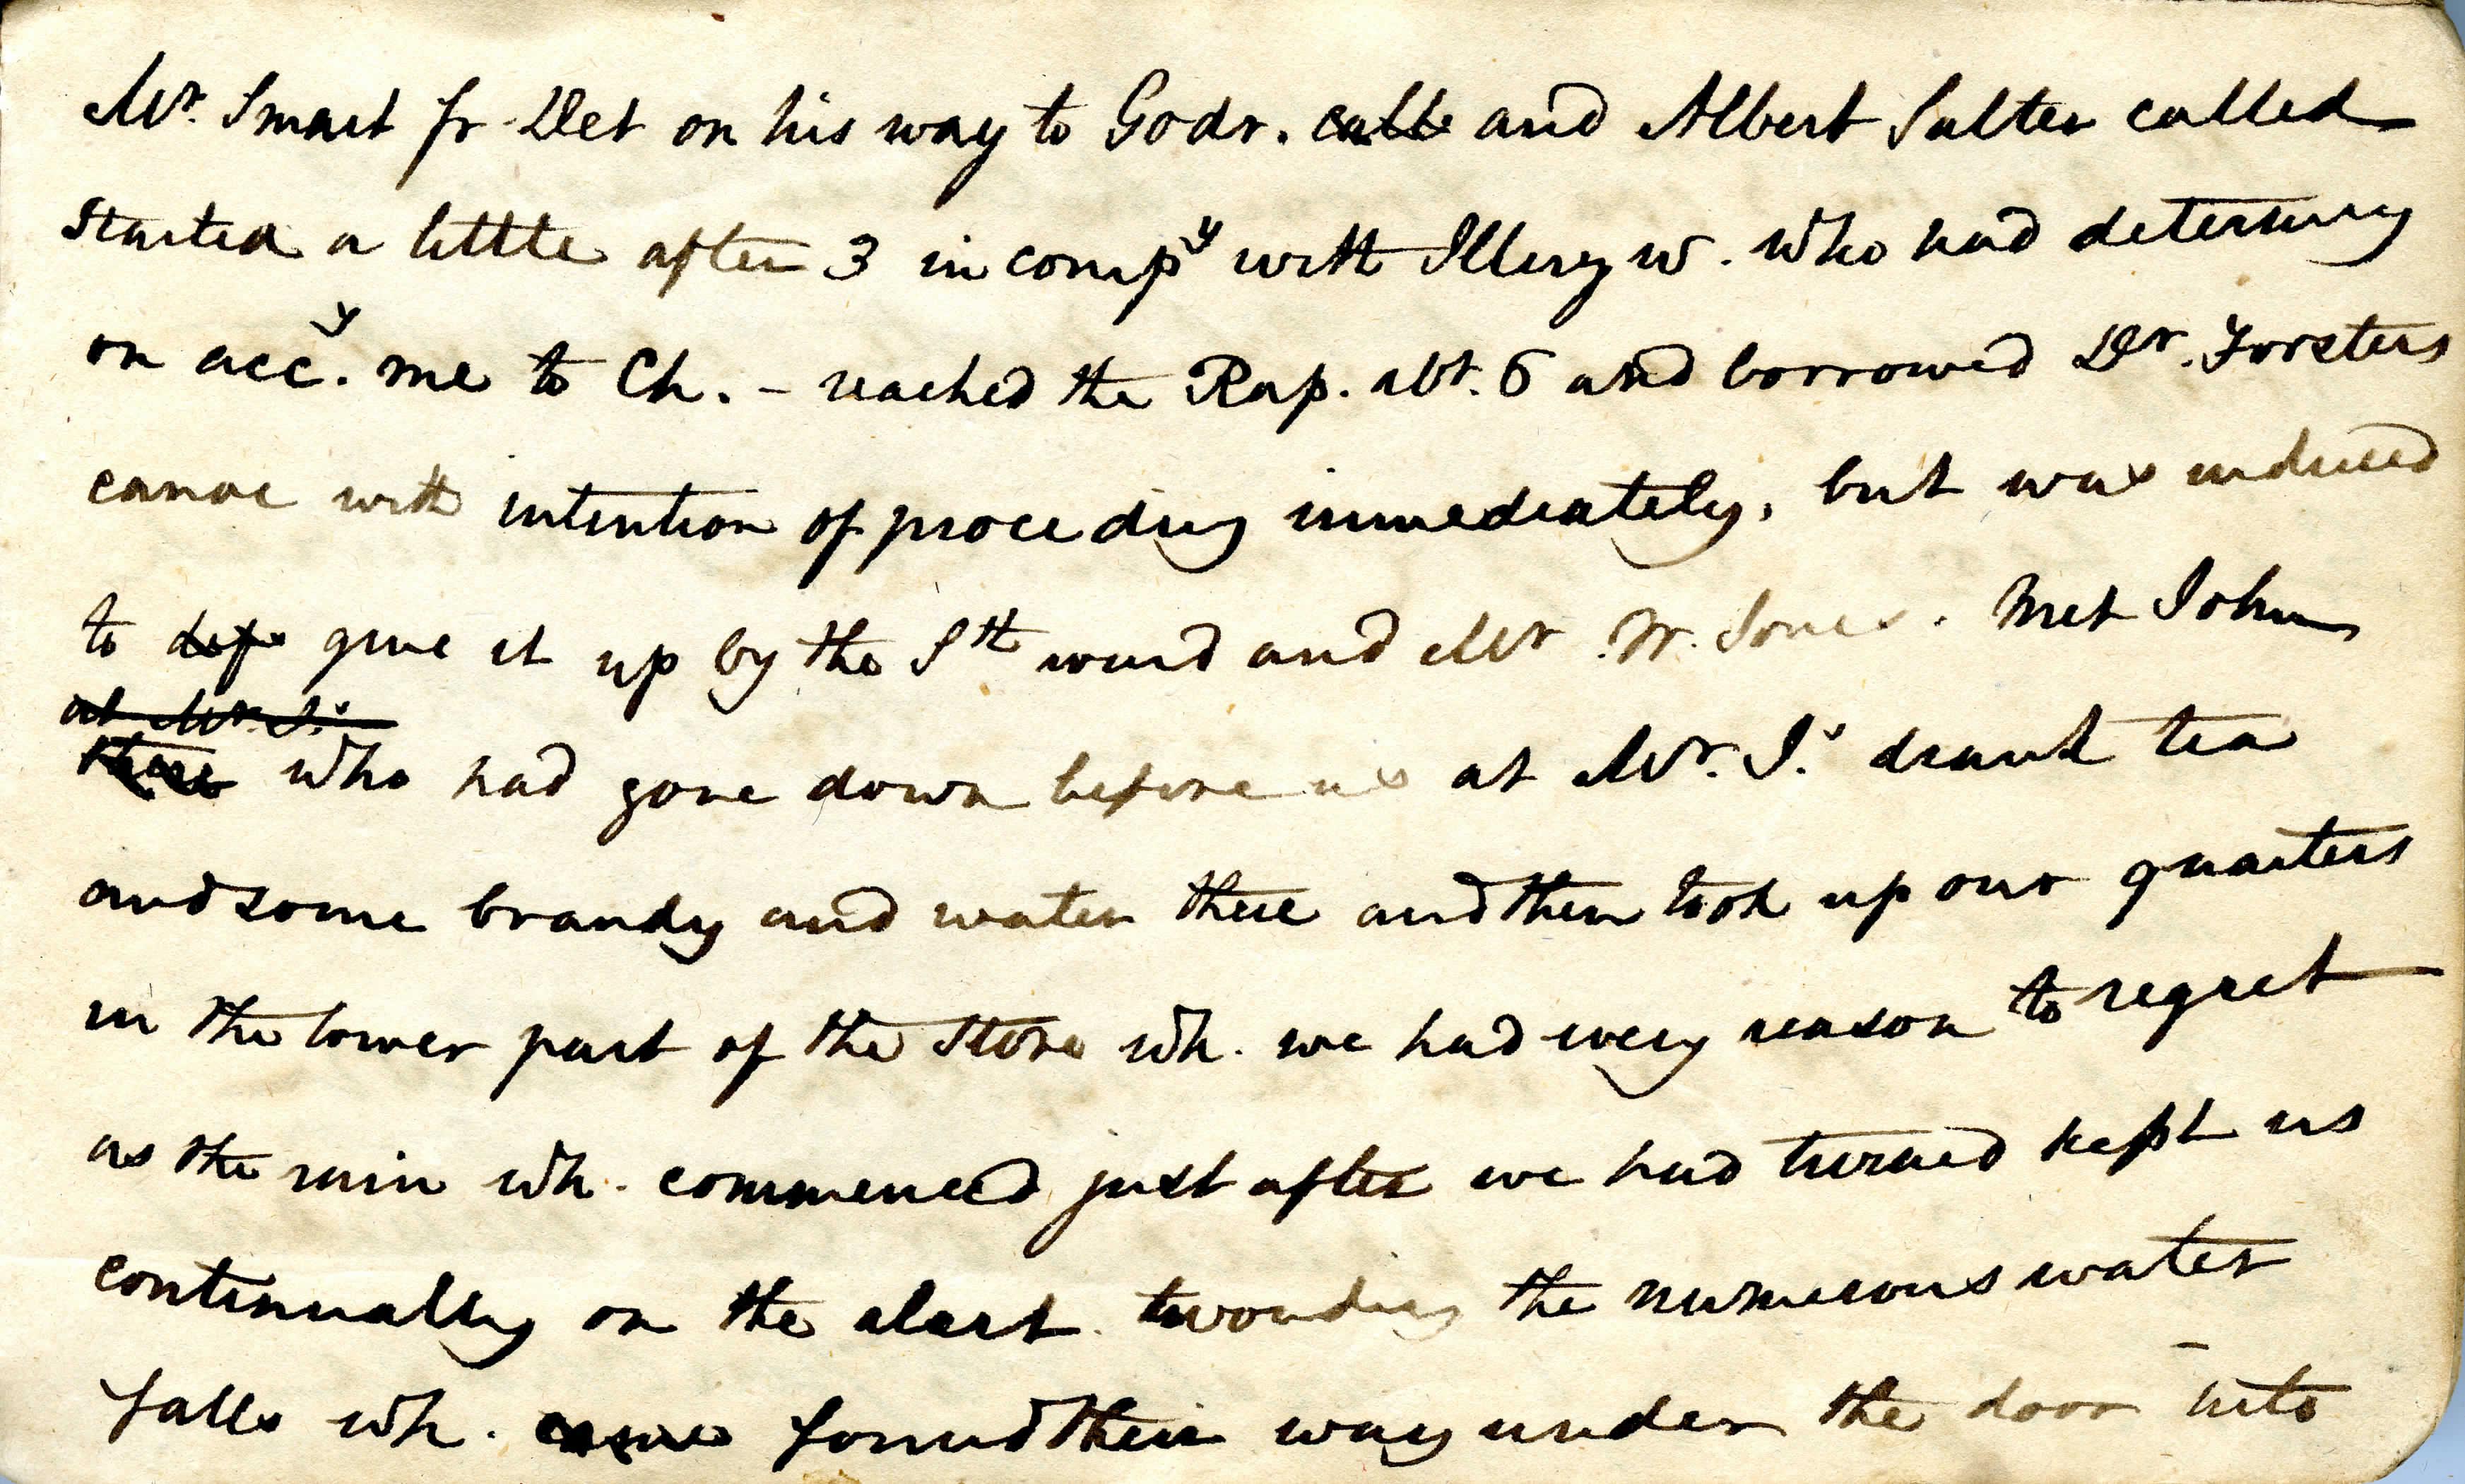 Mr. Smart fr Det on his way to Godr. calle and Albert Salter called
Started a little after 3 in compy with Illery W. who had
on accy. me to Ch. – reached the Rap. abt. 6 and borrowed Dr. Forsters
canoe with intention of proceding immediately, but was induced
to give it up by the Sth wind and Mr W. Jones. Met John
at Mr. J.s
there who had gone down before us at Mr. J.s drank tea
and some brandy and water there and then took up our quarters
in the lower part of the Store wh. we had every reason to regret
as the rain wh. commenced just after we had turned kept us
continually on the alert the numerous water
falls wh. found their way under the door into